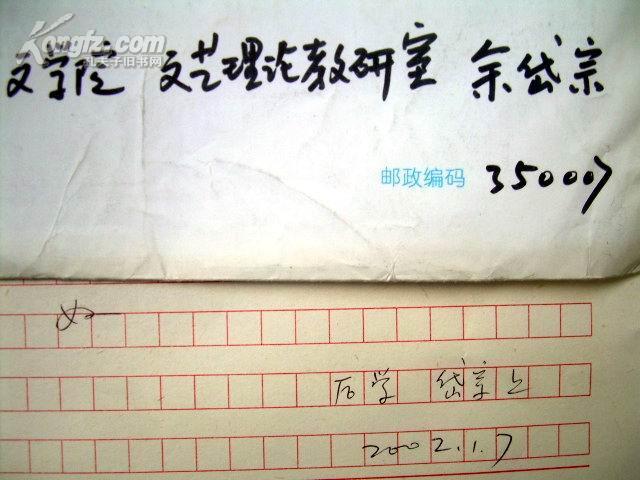 Kongfz.com
孔夫子旧书网
文学院 文艺理论教研室 余岱宗
邮政编码 350007
后学 岱宗上
2002.1.7